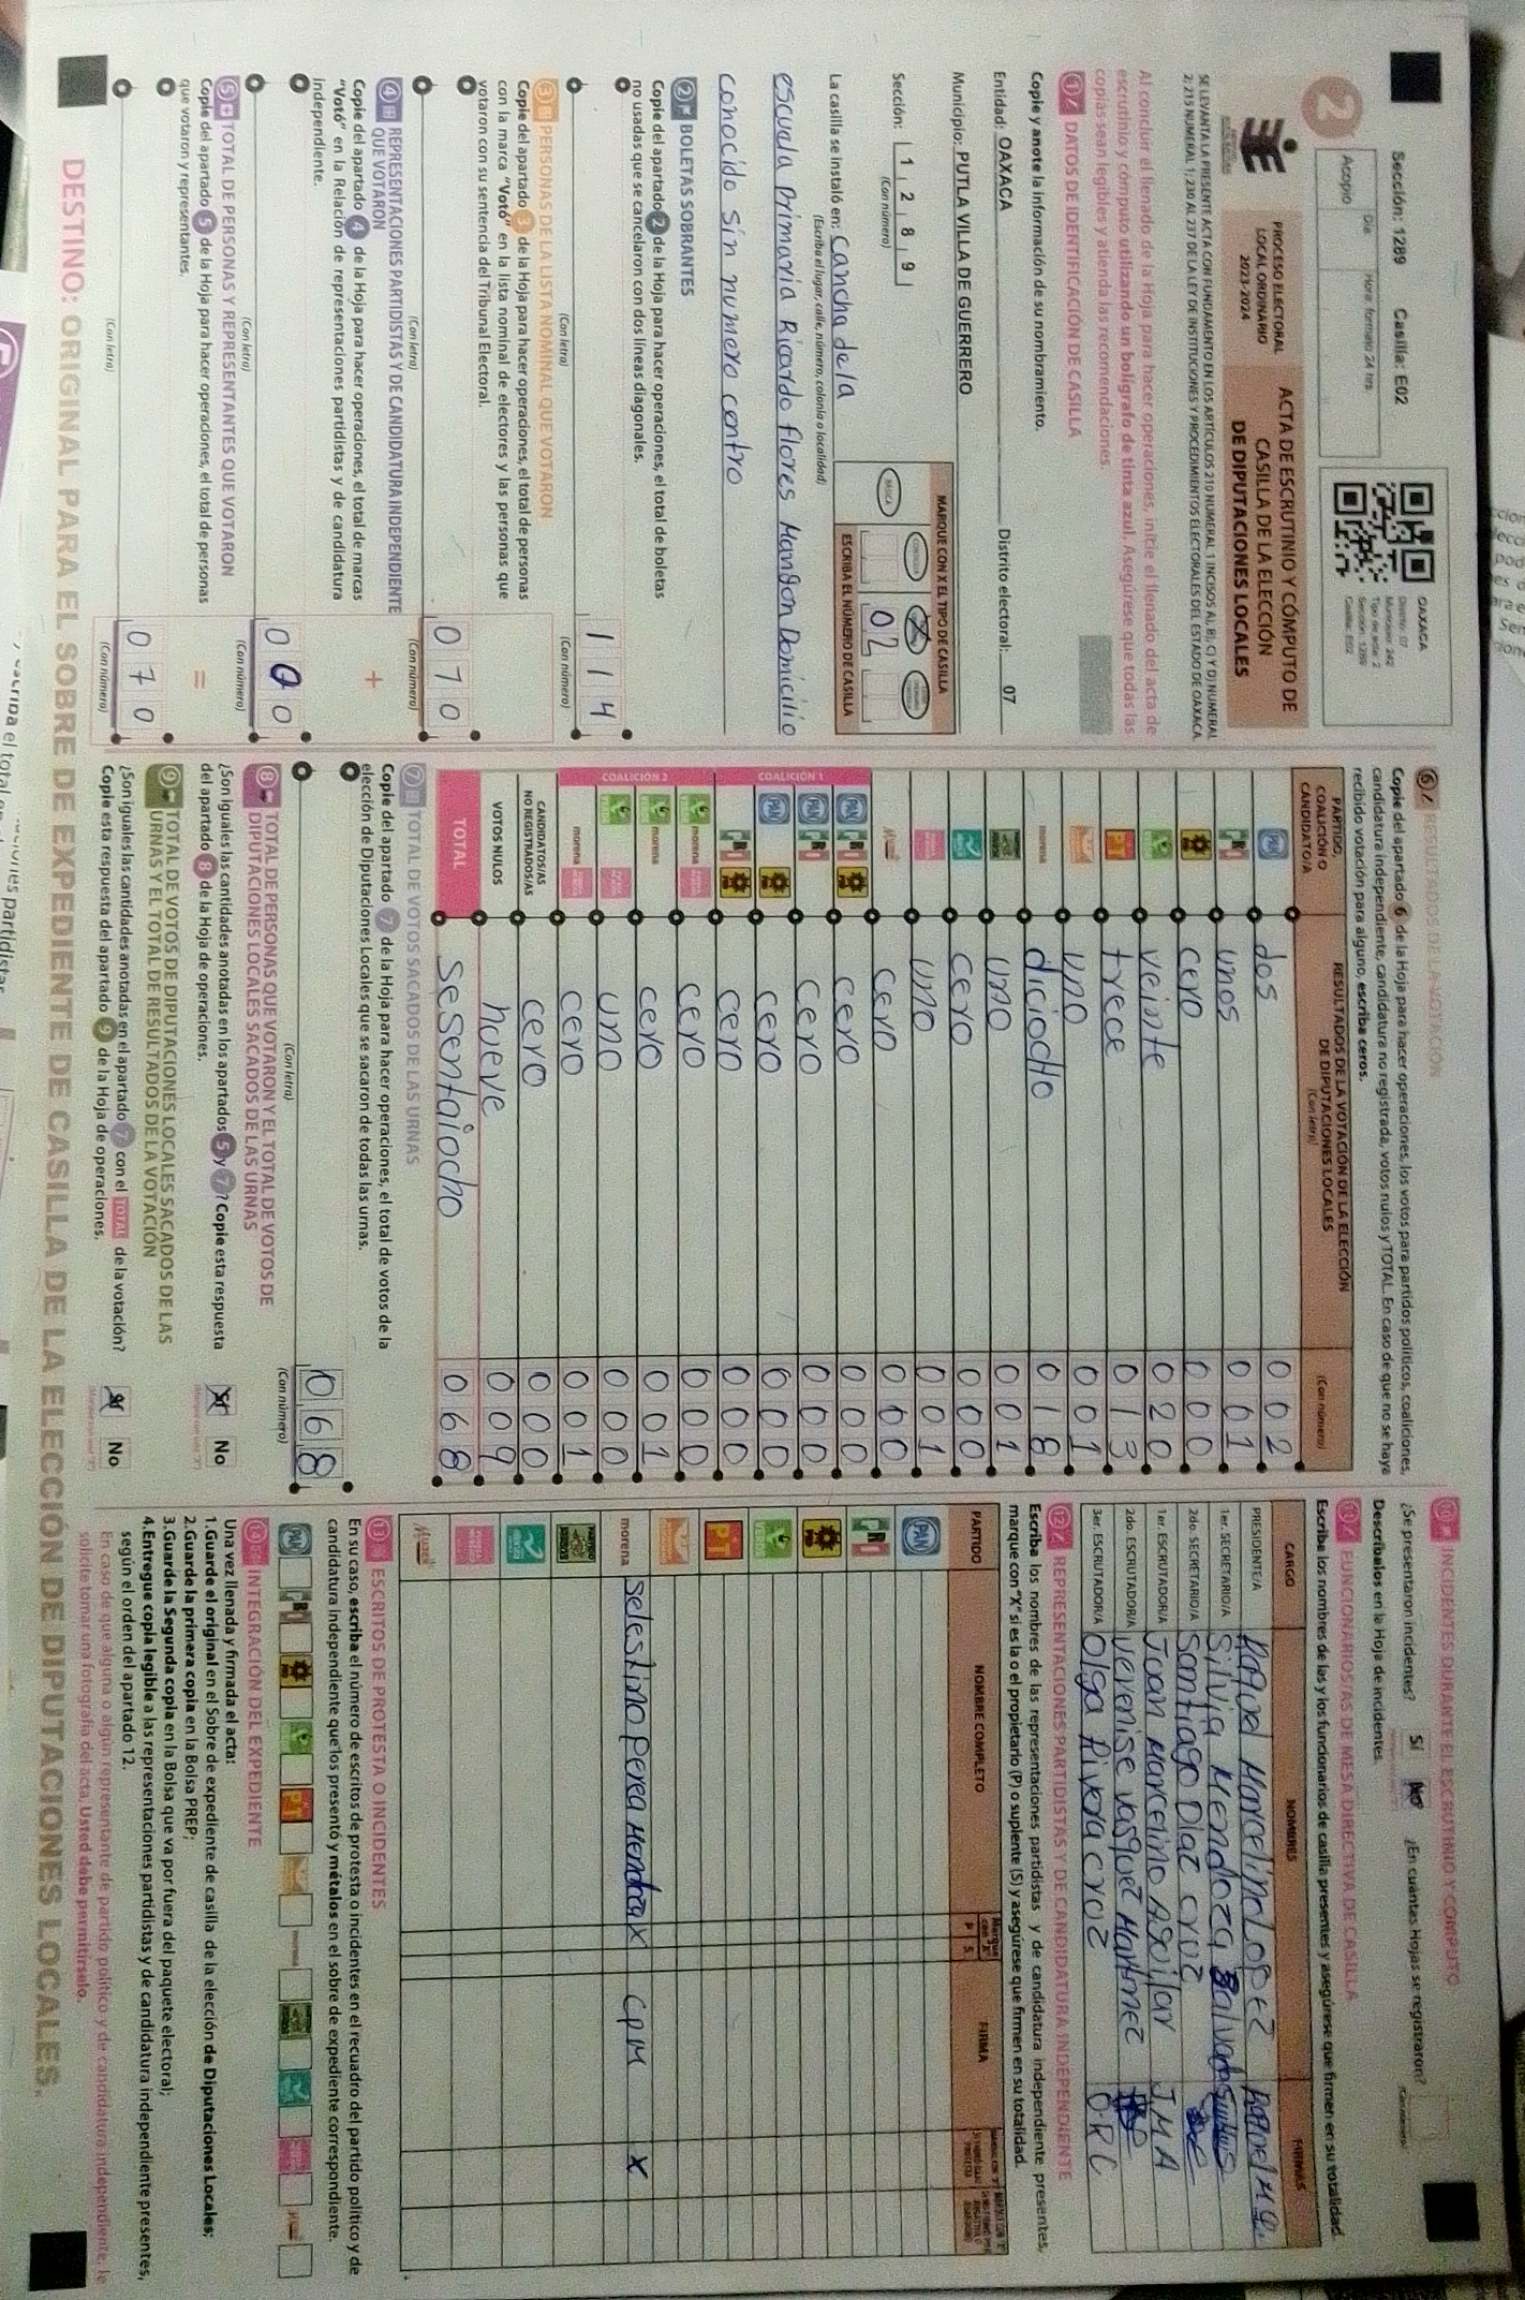 Sección: 1289 Casilla: E02
Acopio
Día:
Hora: formato 24 hrs.
2
OAXACA
Distrito: 07
Municipio: 242
Tipo de acta: 2
Sección: 1289
Casilla: E02
PROCESO ELECTORAL
LOCAL ORDINARIO
2023-2024
ACTA DE ESCRUTINIO Y CÓMPUTO DE
CASILLA DE LA ELECCIÓN
DE DIPUTACIONES LOCALES
SE LEVANTA LA PRESENTE ACTA CON FUNDAMENTO EN LOS ARTÍCULOS 210 NUMERAL 1 INCISOS A), B), C) Y D) NUMERAL
2; 215 NUMERAL 1; 230 AL 237 DE LA LEY DE INSTITUCIONES Y PROCEDIMIENTOS ELECTORALES DEL ESTADO DE OAXACA.
Al concluir el llenado de la Hoja para hacer operaciones, inicie el llenado del acta de
escrutinio y cómputo utilizando un bolígrafo de tinta azul. Asegúrese que todas las
copias sean legibles y atienda las recomendaciones.
1 DATOS DE IDENTIFICACIÓN DE CASILLA
Copie y anote la información de su nombramiento.
Entidad: OAXACA Distrito electoral: 07
Municipio: PUTLA VILLA DE GUERRERO
Sección: 1 2 8 9
(Con número)
MARQUE CON X EL TIPO DE CASILLA
BÁSICA
02
ESCRIBA EL NÚMERO DE CASILLA
La casilla se instaló en: Cancha de la
(Escriba el lugar, calle, número, colonia o localidad)
escuela primaria Ricardo flores Mangon Domicilio
conocido sin numero centro
2 BOLETAS SOBRANTES
Copie del apartado 2 de la Hoja para hacer operaciones, el total de boletas
no usadas que se cancelaron con dos líneas diagonales.
1 1 4
(Con letra) (Con número)
3 PERSONAS DE LA LISTA NOMINAL QUE VOTARON
Copie del apartado 3 de la Hoja para hacer operaciones, el total de personas
con la marca "Votó" en la lista nominal de electores y las personas que
votaron con su sentencia del Tribunal Electoral.
0 7 0
(Con letra) (Con número)
4 REPRESENTACIONES PARTIDISTAS Y DE CANDIDATURA INDEPENDIENTE
QUE VOTARON
Copie del apartado 4 de la Hoja para hacer operaciones, el total de marcas
"Votó" en la Relación de representaciones partidistas y de candidatura
independiente.
+
0 0 0
(Con letra) (Con número)
5 TOTAL DE PERSONAS Y REPRESENTANTES QUE VOTARON
Copie del apartado 5 de la Hoja para hacer operaciones, el total de personas
que votaron y representantes.
=
0 7 0
(Con letra) (Con número)
6 RESULTADOS DE LA VOTACIÓN
Copie del apartado 6 de la Hoja para hacer operaciones, los votos para partidos políticos, coaliciones,
candidatura independiente, candidatura no registrada, votos nulos y TOTAL. En caso de que no se haya
recibido votación para alguno, escriba ceros.
PARTIDO,
COALICIÓN O
CANDIDATO/A
RESULTADOS DE LA VOTACIÓN DE LA ELECCIÓN
DE DIPUTACIONES LOCALES
(Con letra)
(Con número)
PAN dos 0 0 2
PRI unos 0 0 1
PRD cero 0 0 0
VERDE veinte 0 2 0
PT trece 0 1 3
uno 0 0 1
morena diciocHo 0 1 8
uno 0 0 1
cero 0 0 0
uno 0 0 1
Mujer cero 0 0 0
COALICIÓN 1
PAN PRI PRD cero 0 0 0
PAN PRI cero 0 0 0
PAN PRD cero 0 0 0
PRI PRD cero 0 0 0
COALICIÓN 2
VERDE morena cero 0 0 0
VERDE morena cero 0 0 1
VERDE uno 0 0 0
morena cero 0 0 1
CANDIDATOS/AS
NO REGISTRADOS/AS cero 0 0 0
VOTOS NULOS nueve 0 0 9
TOTAL sesentaiocho 0 6 8
7 TOTAL DE VOTOS SACADOS DE LAS URNAS
Copie del apartado 7 de la Hoja para hacer operaciones, el total de votos de la
elección de Diputaciones Locales que se sacaron de todas las urnas.
0 6 8
(Con letra) (Con número)
8 TOTAL DE PERSONAS QUE VOTARON Y EL TOTAL DE VOTOS DE
DIPUTACIONES LOCALES SACADOS DE LAS URNAS
¿Son iguales las cantidades anotadas en los apartados 5 y 7? Copie esta respuesta
del apartado 8 de la Hoja de operaciones.
Sí No
9 TOTAL DE VOTOS DE DIPUTACIONES LOCALES SACADOS DE LAS
URNAS Y EL TOTAL DE RESULTADOS DE LA VOTACIÓN
¿Son iguales las cantidades anotadas en el apartado 7 con el TOTAL de la votación?
Copie esta respuesta del apartado 9 de la Hoja de operaciones.
Sí No
10 INCIDENTES DURANTE EL ESCRUTINIO Y CÓMPUTO
¿Se presentaron incidentes? Sí No ¿En cuántas Hojas se registraron?
(Con número)
Descríbalos en la Hoja de incidentes.
11 FUNCIONARIOS/AS DE MESA DIRECTIVA DE CASILLA
Escriba los nombres de las y los funcionarios de casilla presentes y asegúrese que firmen en su totalidad.
CARGO NOMBRES FIRMAS
PRESIDENTE/A Raquel Marcelino Lopez
1er. SECRETARIO/A Silvia Mendoza
2do. SECRETARIO/A Santiago Diaz cruz
1er. ESCRUTADOR/A Joan Marcelino Aguilar J.M A
2do. ESCRUTADOR/A Verenise vasquez Martinez
3er. ESCRUTADOR/A Olga Rivera cruz O.R C
12 REPRESENTACIONES PARTIDISTAS Y DE CANDIDATURA INDEPENDIENTE
Escriba los nombres de las representaciones partidistas y de candidatura independiente presentes,
marque con "X" si es la o el propietario (P) o suplente (S) y asegúrese que firmen en su totalidad.
PARTIDO NOMBRE COMPLETO P S FIRMA
PAN
PRI
PRD
VERDE
PT
morena selestino perea Mendoza X CPM X
Mujer
13 ESCRITOS DE PROTESTA O INCIDENTES
En su caso, escriba el número de escritos de protesta o incidentes en el recuadro del partido político y de
candidatura independiente que los presentó y métalos en el sobre de expediente correspondiente.
PAN PRI PRD VERDE PT morena Mujer
14 INTEGRACIÓN DEL EXPEDIENTE
Una vez llenada y firmada el acta:
1.Guarde el original en el Sobre de expediente de casilla de la elección de Diputaciones Locales;
2.Guarde la primera copia en la Bolsa PREP;
3.Guarde la Segunda copia en la Bolsa que va por fuera del paquete electoral;
4.Entregue copia legible a las representaciones partidistas y de candidatura independiente presentes,
según el orden del apartado 12.
En caso de que alguna o algún representante de partido político y de candidatura independiente, le
solicite tomar una fotografía del acta, Usted debe permitírselo.
DESTINO: ORIGINAL PARA EL SOBRE DE EXPEDIENTE DE CASILLA DE LA ELECCIÓN DE DIPUTACIONES LOCALES.